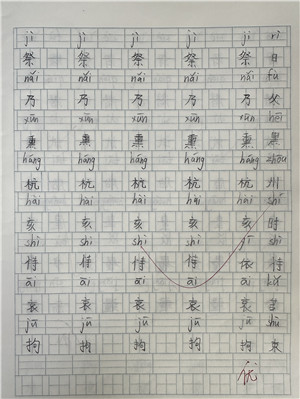 jì jì jì jì jì rì
祭 祭 祭 祭 祭 日
nǎi nǎi nǎi nǎi nǎi fù
乃 乃 乃 乃 乃 父
xūn xūn xūn xūn xūn hēi
熏 熏 熏 熏 熏 黑
háng háng háng háng háng zhōu
杭 杭 杭 杭 杭 州
hài hài hài hài hài shí
亥 亥 亥 亥 亥 时
shì shì shì shì
恃 恃 恃 恃 依 恃
āi āi āi āi āi
哀 哀 哀 哀 哀 苦
jū jū jū jū jū shù
拘 拘 拘 拘 拘 束
优